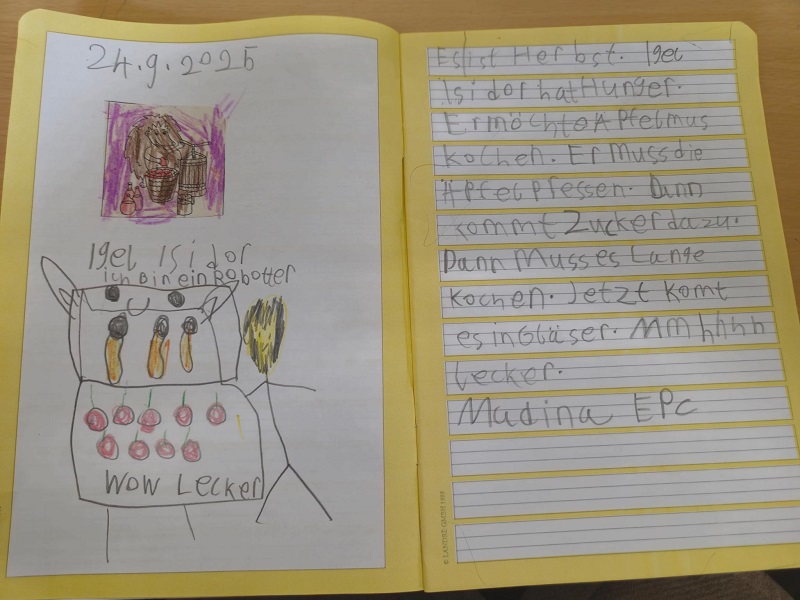 24.9.2025
Igel Isidor
ich Bin ein Robotter
WOW Lecker
Es ist Herbst. Igel
Isidor hat Hunger.
Er möchte Apfelmus
kochen. Er Muss die
Äpfel pfessen. Dann
kommt Zucker dazu.
Dann Muss es Lange
kochen. Jetzt komt
es in Gläser. Mmhhhh
lecker.
Madina EPC
© LANDRÉ GMBH